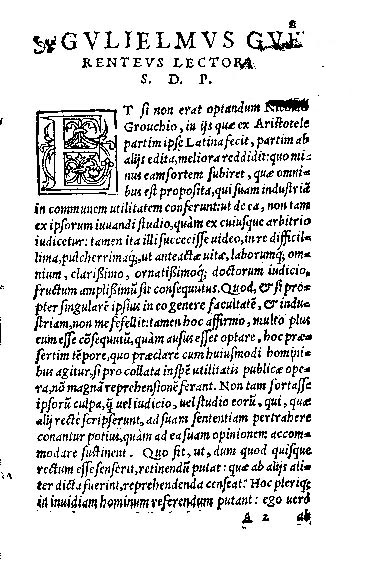 GVLIELMVS GVE
RENTEVS LECTORA
S. D. P.
ET si non erat optandum Nicolao
Grouchio, in ijs quæ ex Aristotele
partim ipse Latina fecit, partim ab
alijs edita, meliora reddidit: quo mi-
nus eam sortem subiret, quæ omni-
bus est propositа, qui suam industriā
in communem utilitatem conferunt: ut de ea, non tam
ex ipsorum iuuandi studio, quàm ex cuiusque arbitrio
iudicetur: tamen ita illi successisse uideo, in re difficil-
lima, pulcherrimaq́;, ut anteactæ uitæ, laborumq́;, om-
nium, clarißimo, ornatißimoq́; doctorum iudicio,
fructum amplißimū sit consequutus. Quod, & si pro-
pter singularē ipsius in eo genere facultatē, & indu-
striam, non me fefellit: tamen hoc affirmo, multo plus
eum esse cōsequutū, quàm ausus esset optare, hoc præ-
sertim tēpore, quo præclare cum huiusmodi homini-
bus agitur, si pro collata inspē utilitatis publicæ ope-
ra, nō magnā reprehensionē ferant. Non tam fortasse
ipsorū culpa, q̃ uel iudicio, uel studio eorū, qui, quæ
alij recte scripserunt, ad suam sententiam pertrahere
conantur potius, quàm ad eā suam opinionem accom-
modare sustinent. Quo fit, ut, dum quod quisque
rectum esse senserit, retinendū putat: quæ ab alijs ali-
ter dicta fuerint, reprehendenda censeat. Hoc pleriq;
in inuidiam hominum referendum putant: ego uerò
A 2 ab